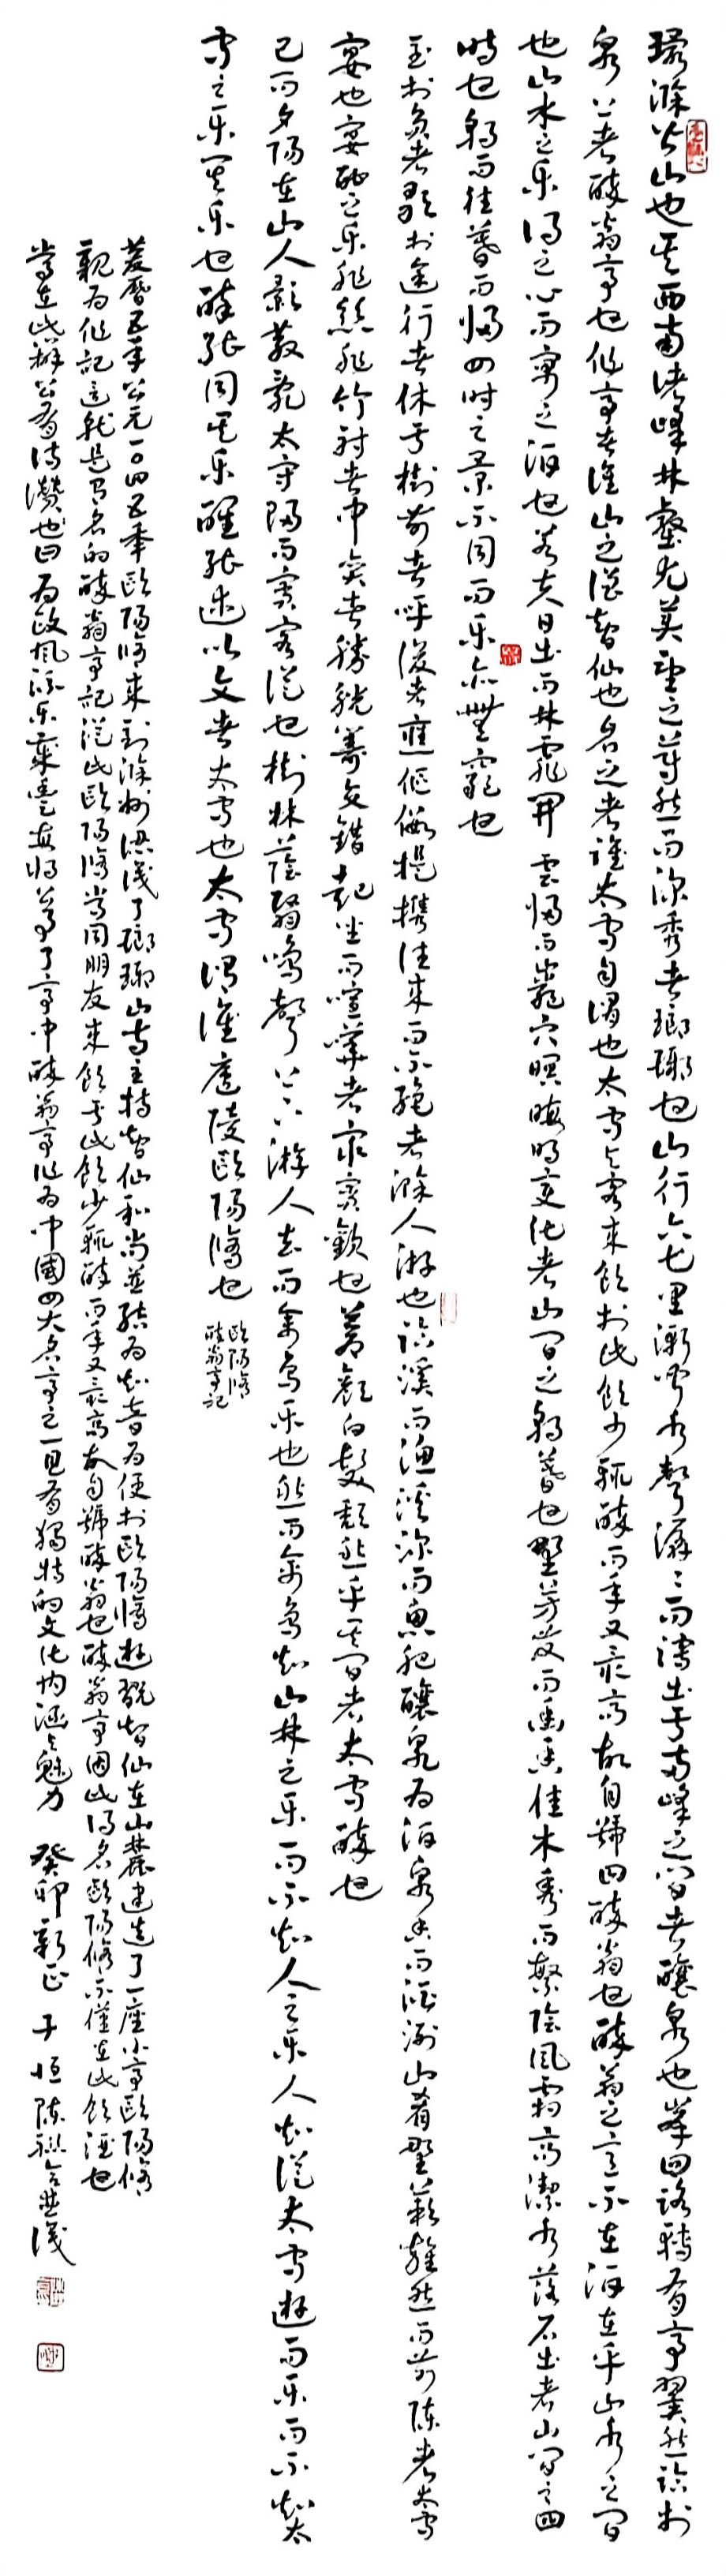 環滁皆山也其西南諸峰林壑尤美望之蔚然而深秀者瑯琊也山行六七里漸聞水聲潺潺而瀉出于兩峰之間者釀泉也峰回路轉有亭翼然臨於
泉上者醉翁亭也作亭者誰山之僧智仙也名之者誰太守自謂也太守與客來飲於此飲少輒醉而年又最高故自號曰醉翁也醉翁之意不在酒在乎山水之間
也山水之樂得之心而寓之酒也若夫日出而林霏開雲歸而巖穴暝晦明變化者山間之朝暮也野芳發而幽香佳木秀而繁陰風霜高潔水落石出者山間之四
時也朝而往暮而歸四時之景不同而樂亦無窮也
至於負者歌於途行者休于樹前者呼後者應傴僂提攜往來而不絕者滁人游也臨溪而漁溪深而魚肥釀泉為酒泉香而酒洌山肴野蔌雜然而前陳者太守
宴也宴酣之樂非絲非竹射者中奕者勝觥籌交錯起坐而喧嘩者眾賓歡也蒼顏白髮頹然乎其間者太守醉也
已而夕陽在山人影散亂太守歸而賓客從也樹林蔭翳鳴聲上下游人去而禽鳥樂也然而禽鳥知山林之樂而不知人之樂人知從太守遊而樂而不知太
守之樂其樂也醉能同其樂醒能述以文者太守也太守謂誰廬陵歐陽修也
歐陽修
醉翁亭記
慶曆五年公元一〇四五年歐陽修來到滁州認識了瑯琊山寺主持智仙和尚並結為知音為便於歐陽修遊玩智仙在山麓建造了一座小亭歐陽修
親為作記這就是有名的醉翁亭記從此歐陽修常同朋友來飲于此飲少輒醉而年又最高故自號醉翁也醉翁亭因此得名歐陽修不僅在此飲酒也
常在此辦公有詩讚也曰為政風流樂歲豐每將公事了亭中醉翁亭作為中國四大名亭之一具有獨特的文化內涵與魅力 癸卯新正 子恒陳聯合並識